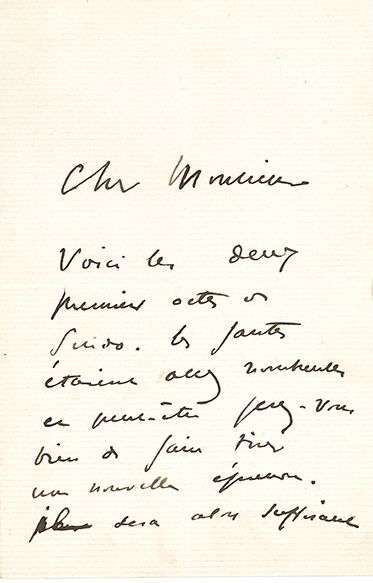 Cher Monsieur
Voici les deux
premiers actes de
Guido. les fautes
étaient assez nombreuses
et peut-être ferez-vous
bien de faire tirer
une nouvelle épreuve.
sera alors suffisant